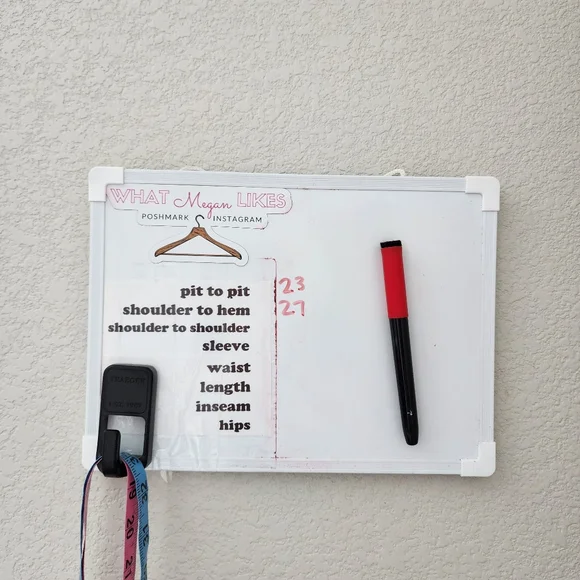 WHAT Megan LIKES
POSHMARK INSTAGRAM
pit to pit 23
shoulder to hem 27
shoulder to shoulder
sleeve
waist
length
inseam
hips
20